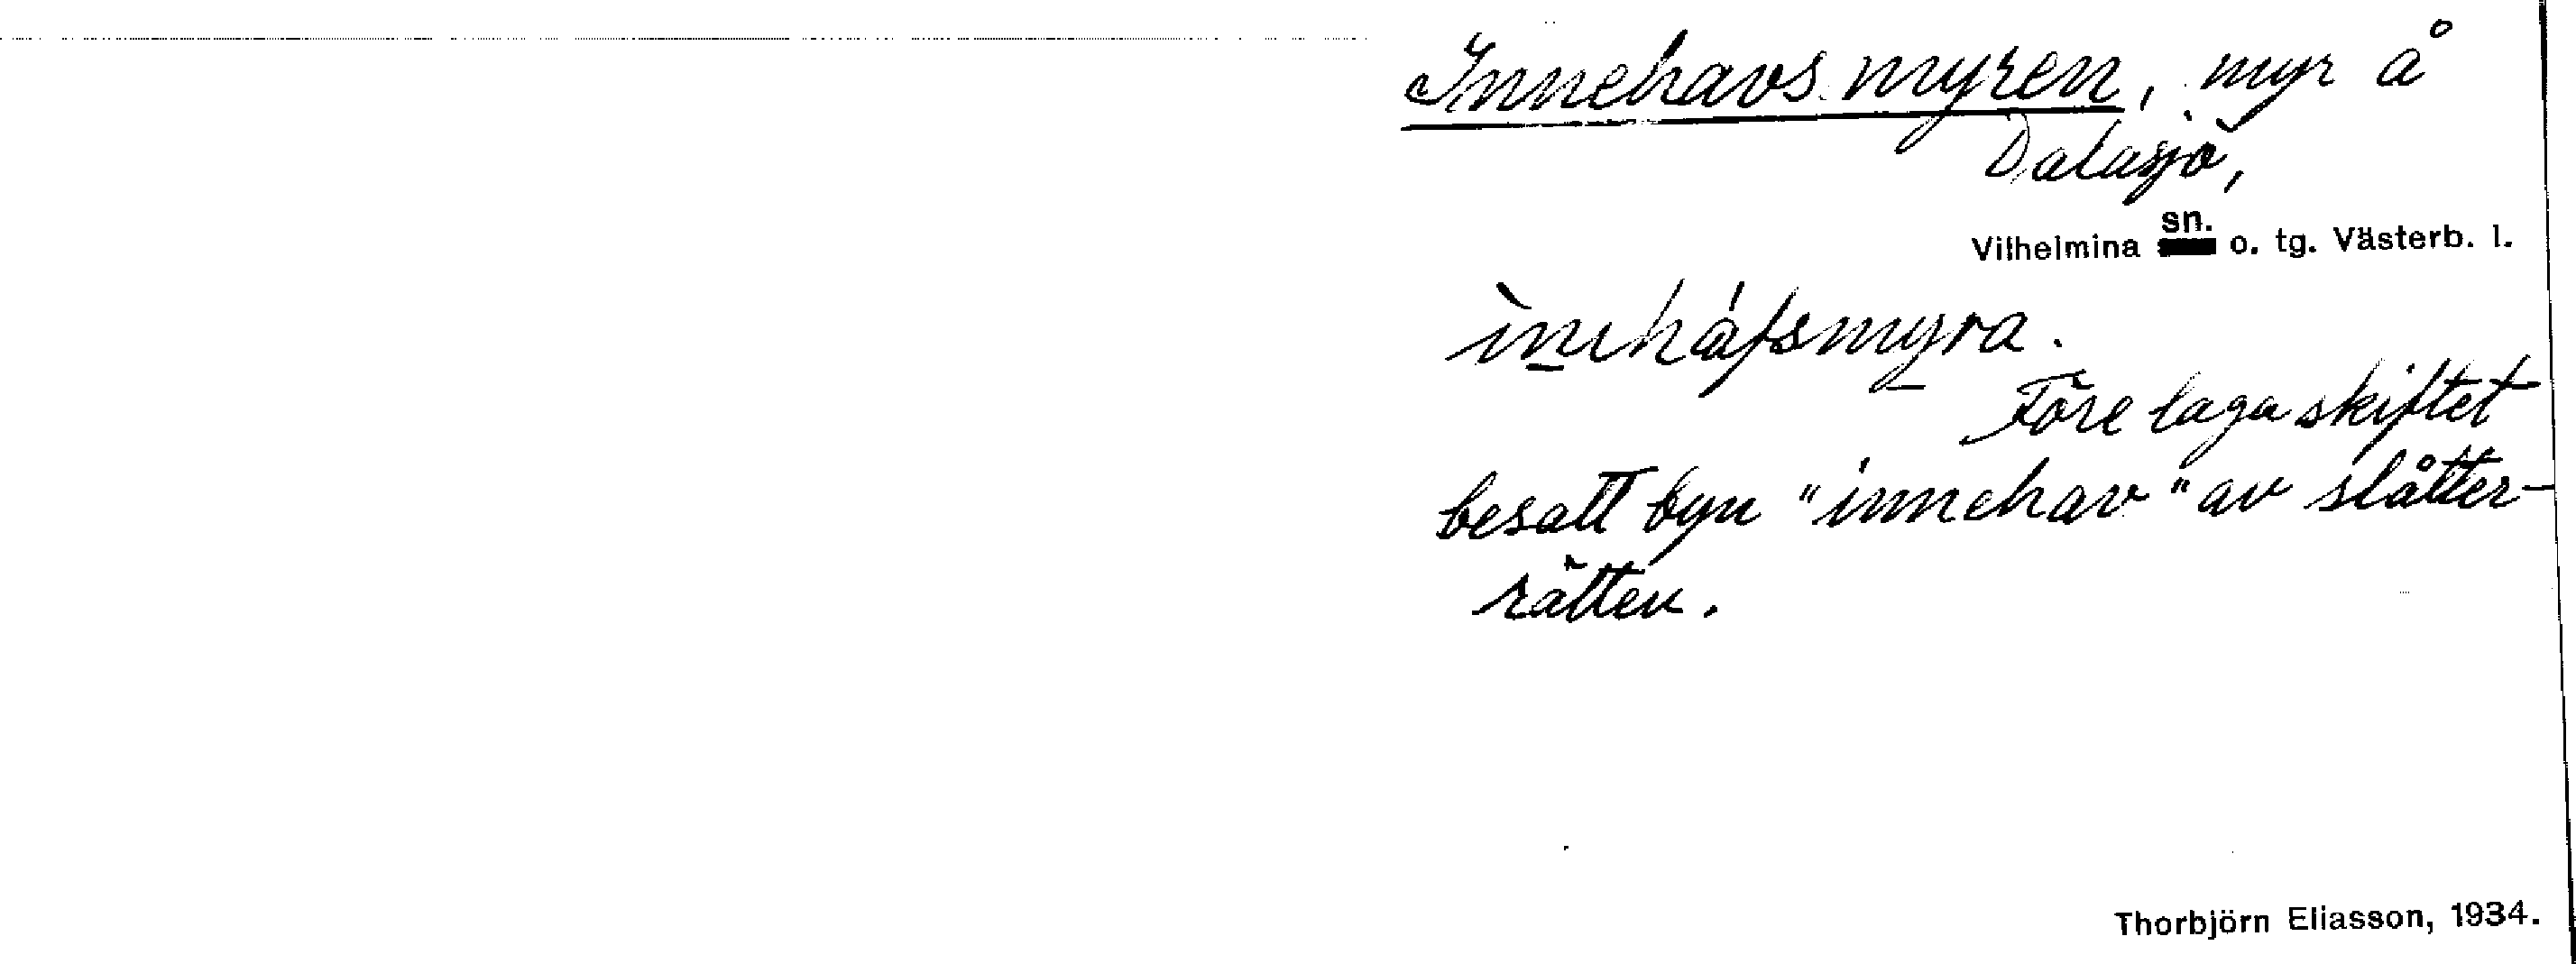 Innehavsmyren, myr å
Dalasjö,
Vilhelmina sn. o. tg. Västerb. l.
ìneháfsmyra.
Före laga skiftet
besatt byn "innehav" av slåtter-
rätten.
Thorbjörn Eliasson, 1934.